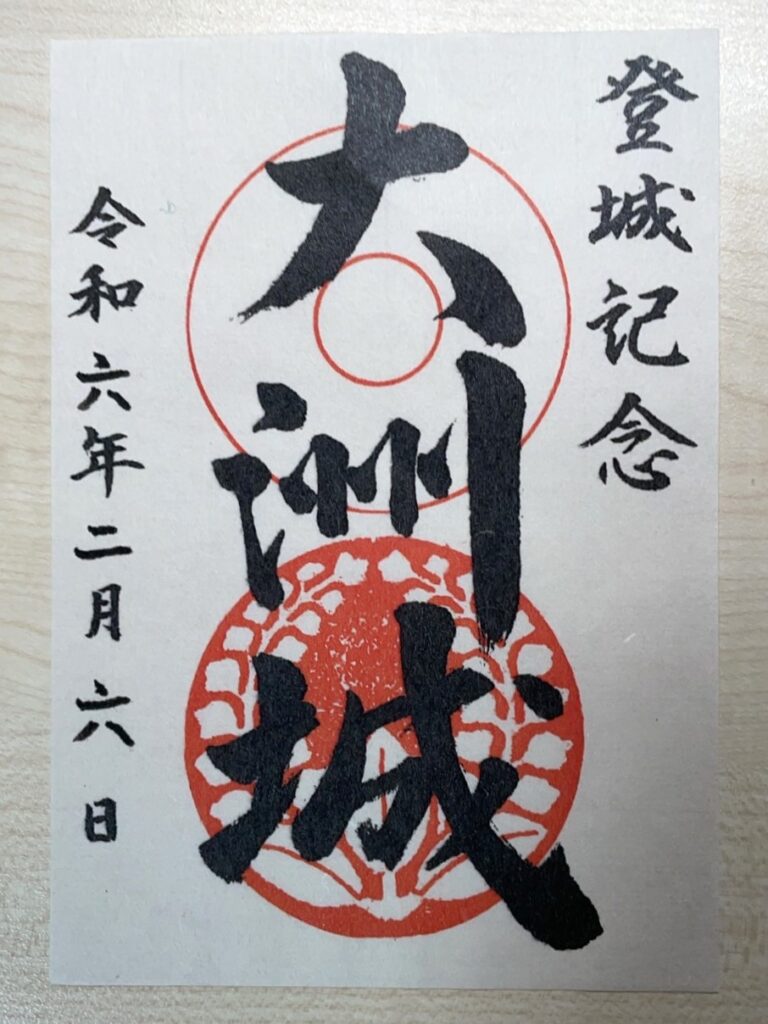 登城記念
大洲城
令和六年二月六日